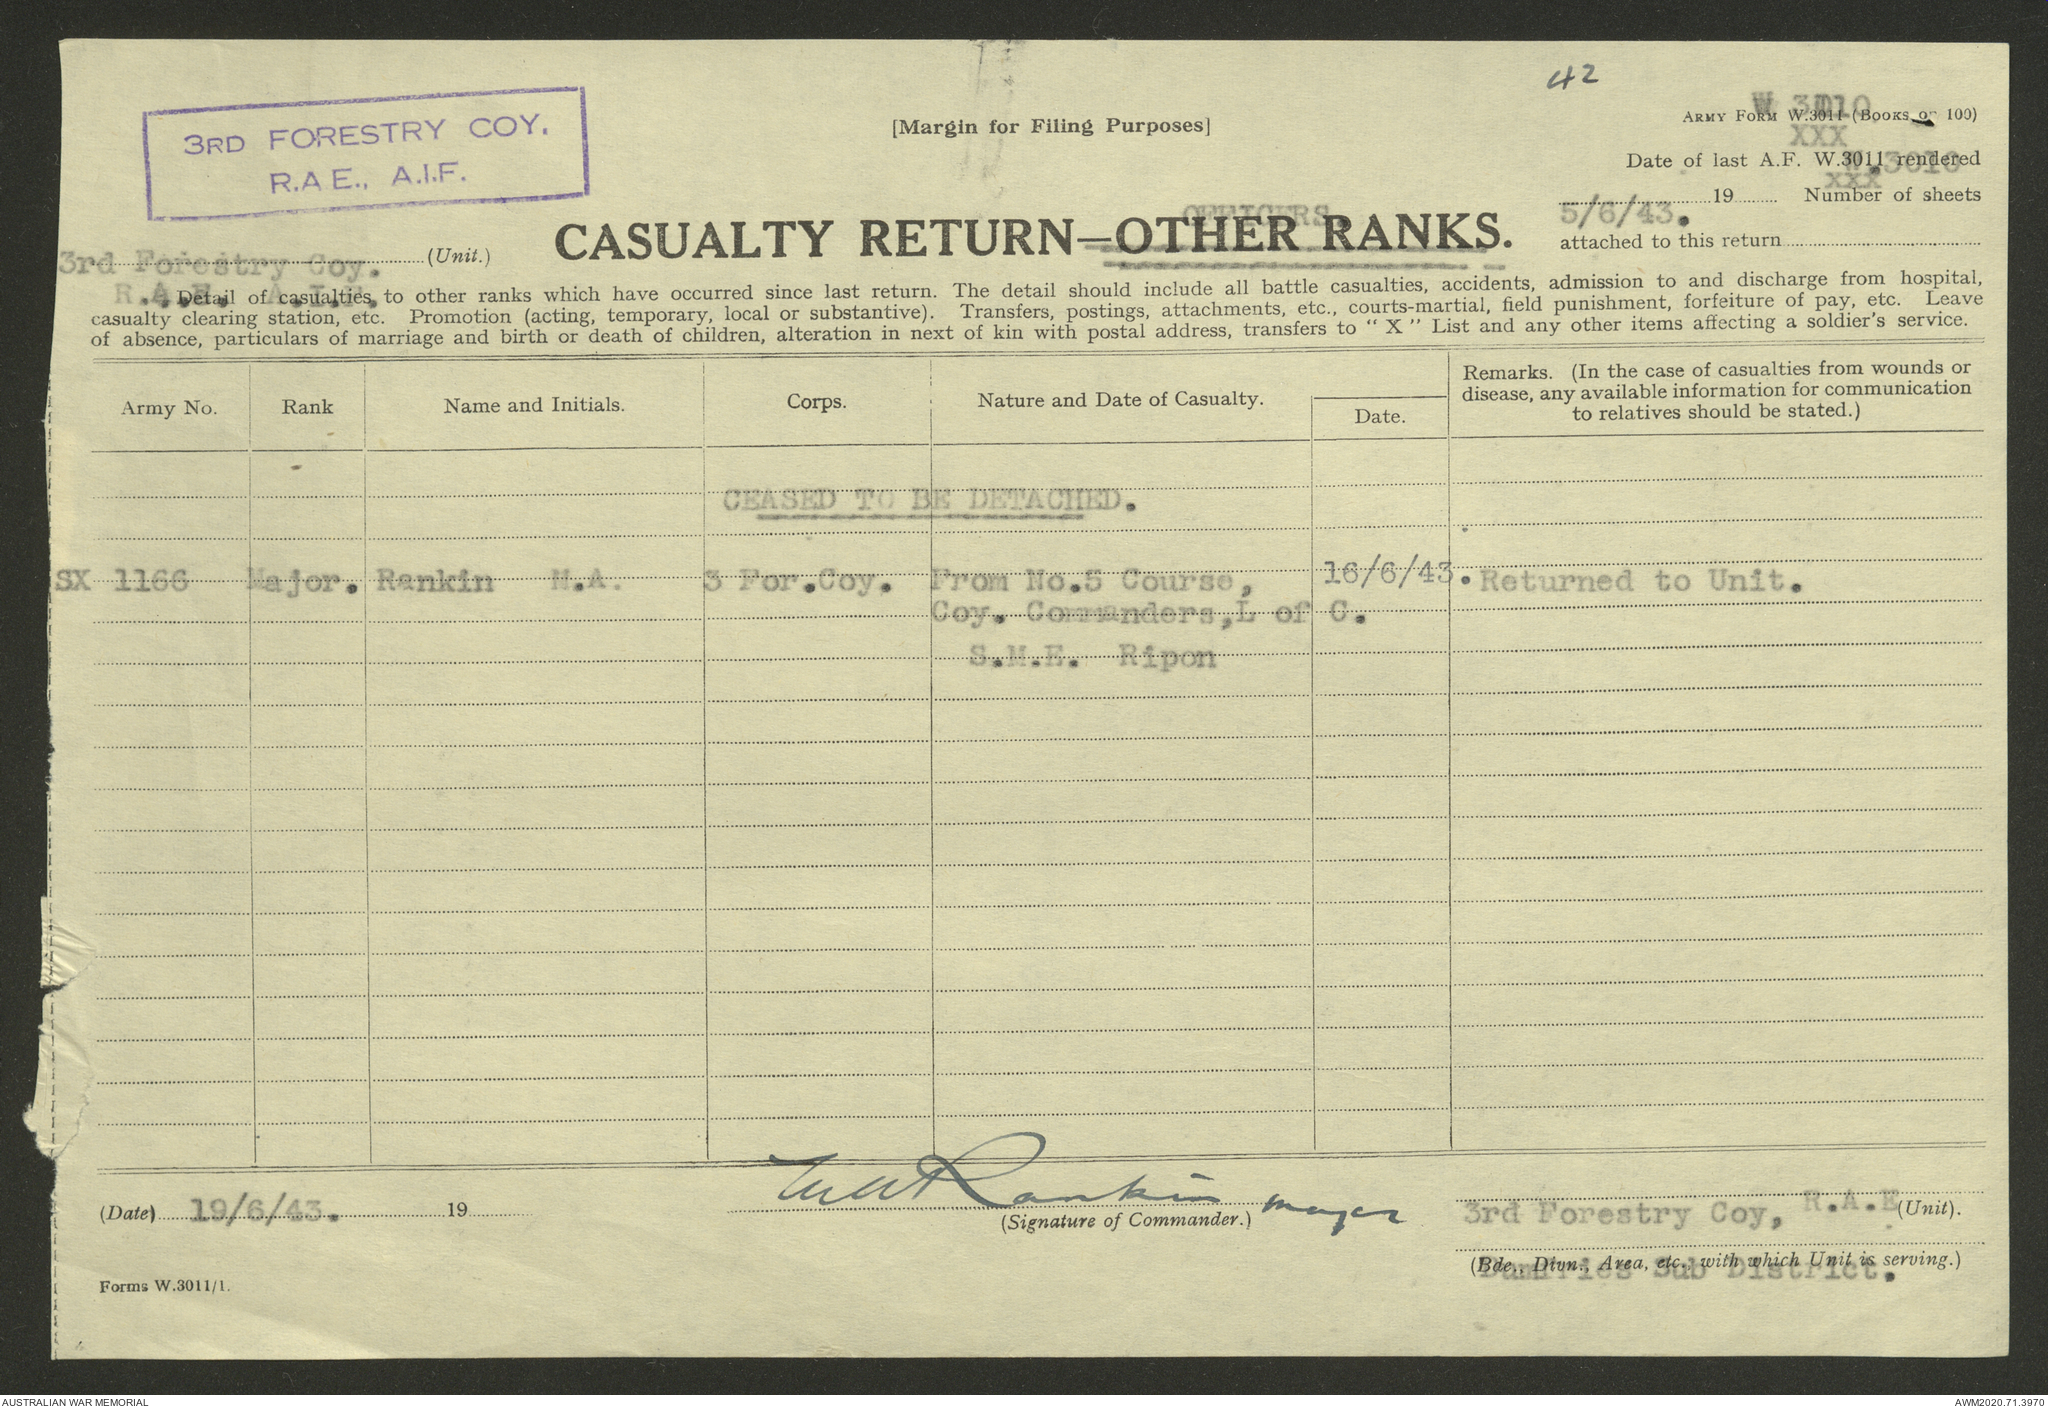 42
3RD FORESTRY COY.
R.A.E., A.I.F.
[Margin for Filing Purposes]
W 3010
ARMY FORM W.3011 (BOOKS OF 100)
XXX
Date of last A.F. W.3011 rendered
W.3010
xxx
5/6/43. 19 Number of sheets
attached to this return
OFFICERS.
CASUALTY RETURN—OTHER RANKS.
3rd Forestry Coy. (Unit.)
R.A.E. A.I.F.
Detail of casualties to other ranks which have occurred since last return. The detail should include all battle casualties, accidents, admission to and discharge from hospital,
casualty clearing station, etc. Promotion (acting, temporary, local or substantive). Transfers, postings, attachments, etc., courts-martial, field punishment, forfeiture of pay, etc. Leave
of absence, particulars of marriage and birth or death of children, alteration in next of kin with postal address, transfers to "X" List and any other items affecting a soldier's service.
Army No. Rank Name and Initials. Corps. Nature and Date of Casualty. Date. Remarks. (In the case of casualties from wounds or
disease, any available information for communication
to relatives should be stated.)
CEASED TO BE DETACHED.
SX 1166 Major. Rankin M.A. 3 For.Coy. From No.5 Course, 16/6/43. Returned to Unit.
Coy. Commanders,L of C.
S.M.E. Ripon
(Date) 19/6/43. 19
MARankin Major
(Signature of Commander.)
3rd Forestry Coy, R.A.E (Unit).
Dumfries Sub District.
(Bde., Divn., Area, etc., with which Unit is serving.)
Forms W.3011/1.
AUSTRALIAN WAR MEMORIAL
AWM2020.71.3970